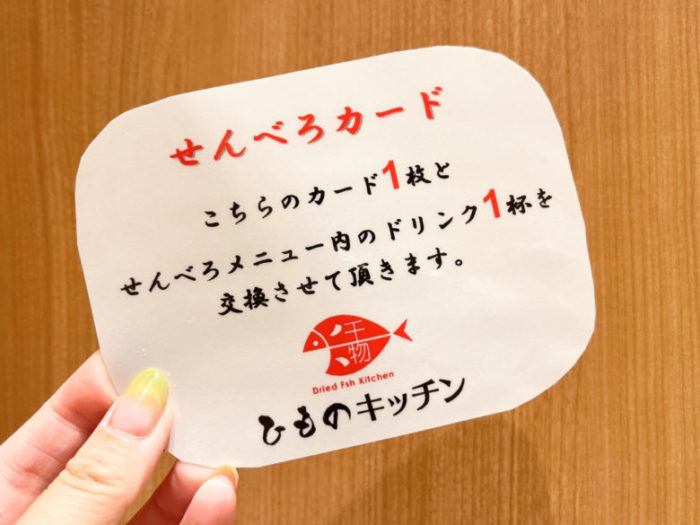 せんべろカード
こちらのカード1枚と
せんべろメニュー内のドリンク1杯を
交換させて頂きます。
干物
Dried Fsh Kitchen
ひものキッチン